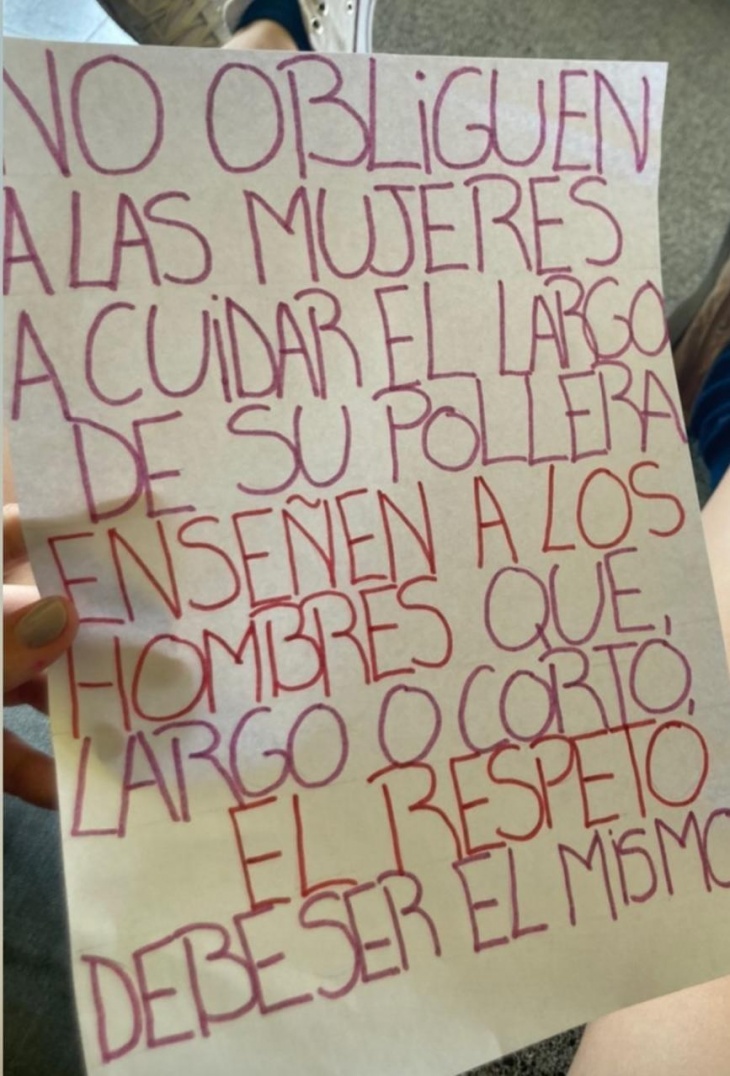 NO OBLiGUEN
A LAS MUJERES
A CUiDAR EL LARGO
DE SU POLLERA
ENSEÑEN A LOS
HOMBRES QUE,
LARGO O CORTO,
EL RESPETO
DEBE SER EL MiSMO